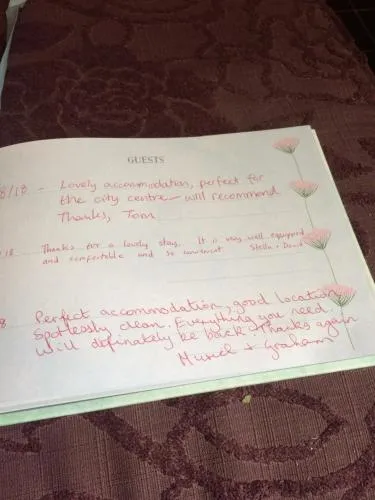 GUESTS
8/18 - Lovely accommodation, perfect for
the city centre - will recommend
Thanks, Tom
18 Thanks for a lovely stay. It is very well equipped
and comfortable and so convenient. Stella + David
8 Perfect accommodation, good location
Spotlessly clean. Everything you need.
Will definately be back + Thanks again
Muriel + Graham